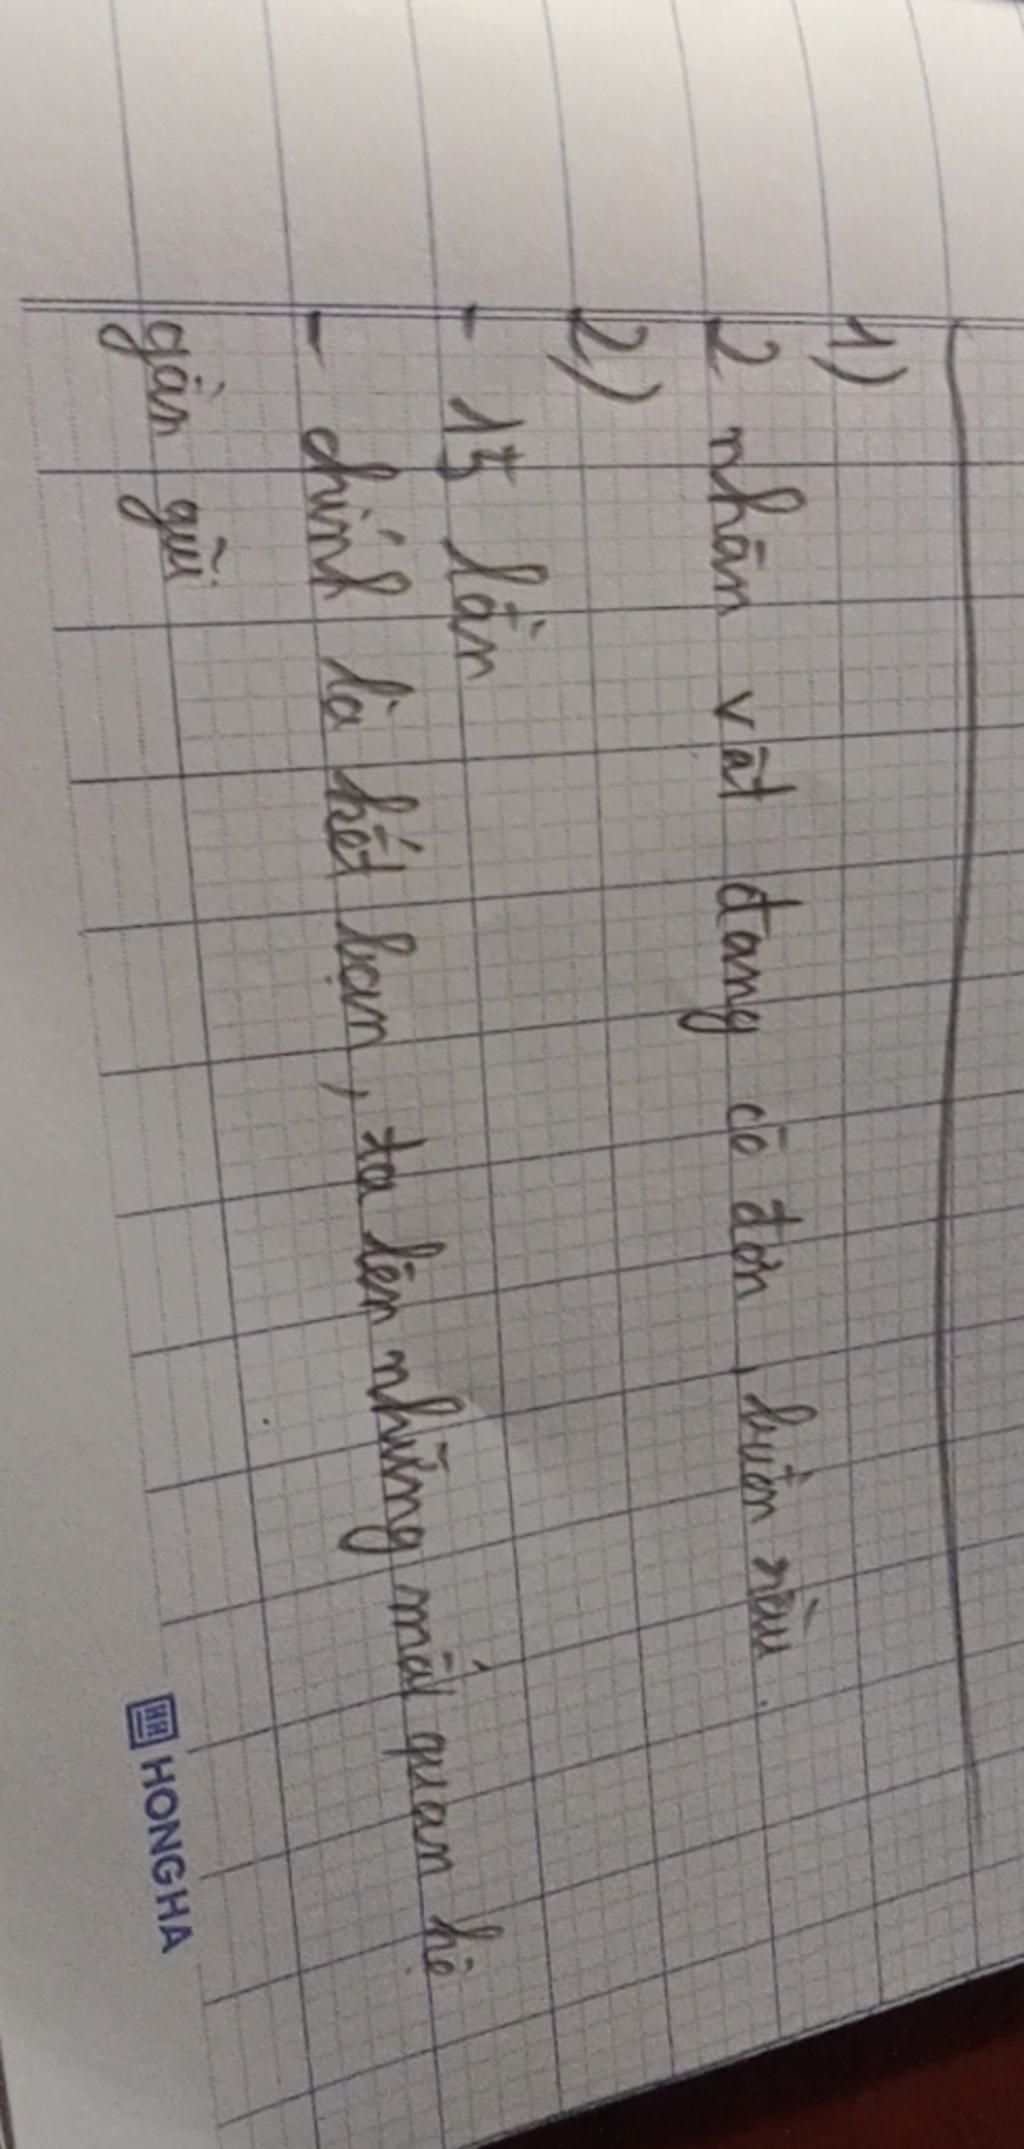 1)
2 nhân vật đang cô đơn, buồn rầu.
2)
- 15 lần
- chính là kết bạn, tạo lên những mối quan hệ
gần gũi
HONGHA